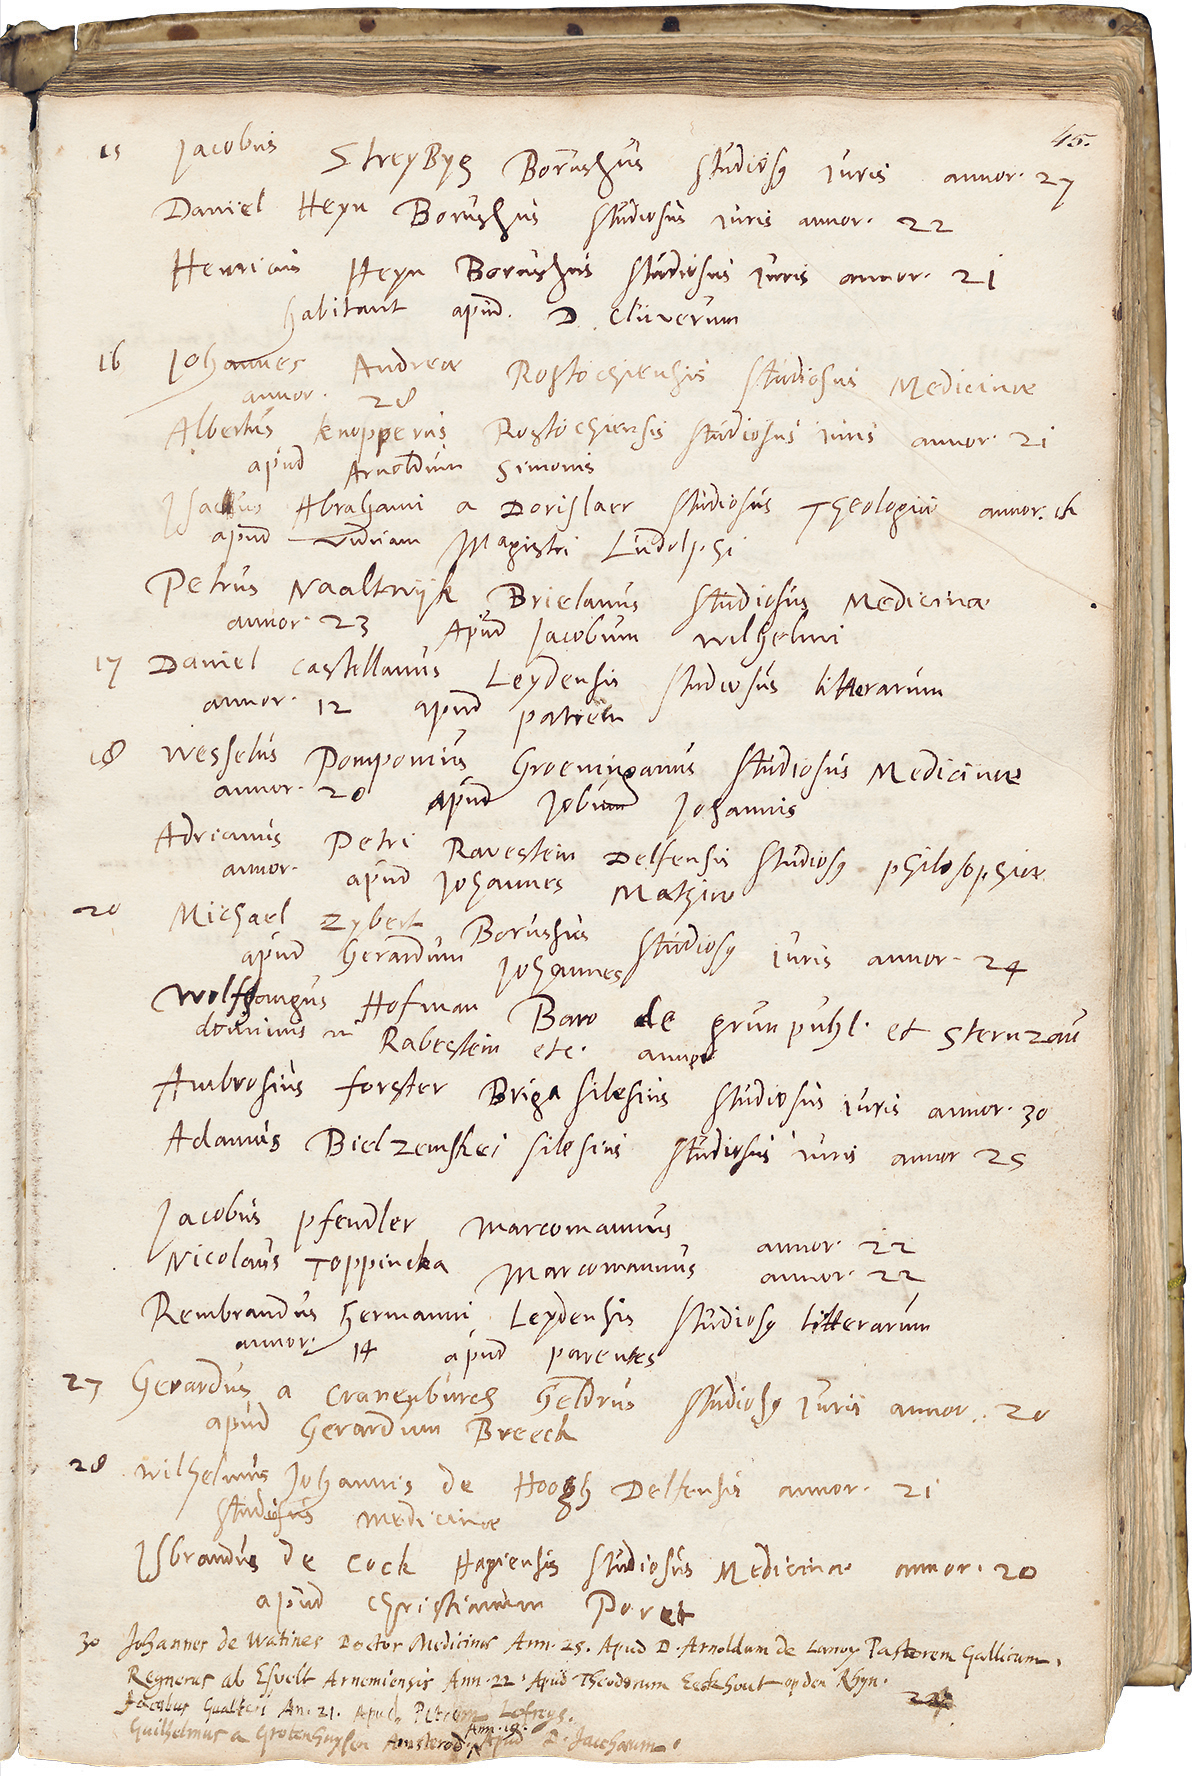 45.
15 Jacobus StreyByg Borushus studiosq Iuris annor. 27
Daniel Heyn Borushus studiosus iuris annor. 22
Henricus Heyn Borushus studiosus Iuris annor. 21
habitant apud. D. Cluverum
16 Johannes Andreæ Rostochiensis studiosus Medicinæ
annor. 28
Albertus Knopperus Rostochiensis studiosus iuris annor. 21
apud Arnoldum Simonis
Abrahami a Dorislaer studiosus Theologiæ annor.
apud viduam Magistri Ludolphi
Petrus Naaltwijk Brielanus studiosus Medicinæ
annor. 23 Apud Jacobum Wilhelmi
17 Daniel Castellanus Leydensis studiosus litterarum
annor. 12 apud patrem
18 Wesselus Pomponius Groeninganus studiosus Medicinæ
annor. 20 apud Jobum Johannis
Adrianus Petri Ravestein Delfensis studiosq philosophiæ
annor. apud Johannes
20 Michael Zybert Borushus studiosq Iuris annor. 24
apud Gerardum Johannes
Wolfgangus Hofman Baro de grunpuhl. et Sternzau
dominus in Rabestein etc. annor
Ambrosius forster Briga silesius studiosus iuris annor. 30
Adamus Bielzemskei silesius studiosus iuris annor 25
Jacobus pfendler Marcomannus annor. 22
Nicolaus Toppincka Marcomannus annor. 22
Rembrandus Hermanni Leydensis studiosq litterarum
annor. 14 apud parentes
27 Gerardus a Cranenburch Geldrus studiosq Iuris annor. 20
apud Gerardum Breeck
28 Wilhelmus Johannis de Hoogh Delfensis annor. 21
studiosus medicinæ
Isbrandus de Cock Hagiensis studiosus Medicinæ annor. 20
apud Christianum Poret
30 Johannes de Watines Doctor Medicinæ Ann. 25. Apud D. Arnoldum de Lanoy Pastorem Gallicum.
Regnerus ab Esvelt Arnemiensis Ann. 22. Apud Theodorum Eeckhout op den Rhyn.
Jacobus Gualteri An. 21. Apud Petrum
Guilhelmus a Grotenhuysen Amsterod. Ann. 18. Apud D. Jacchæum.